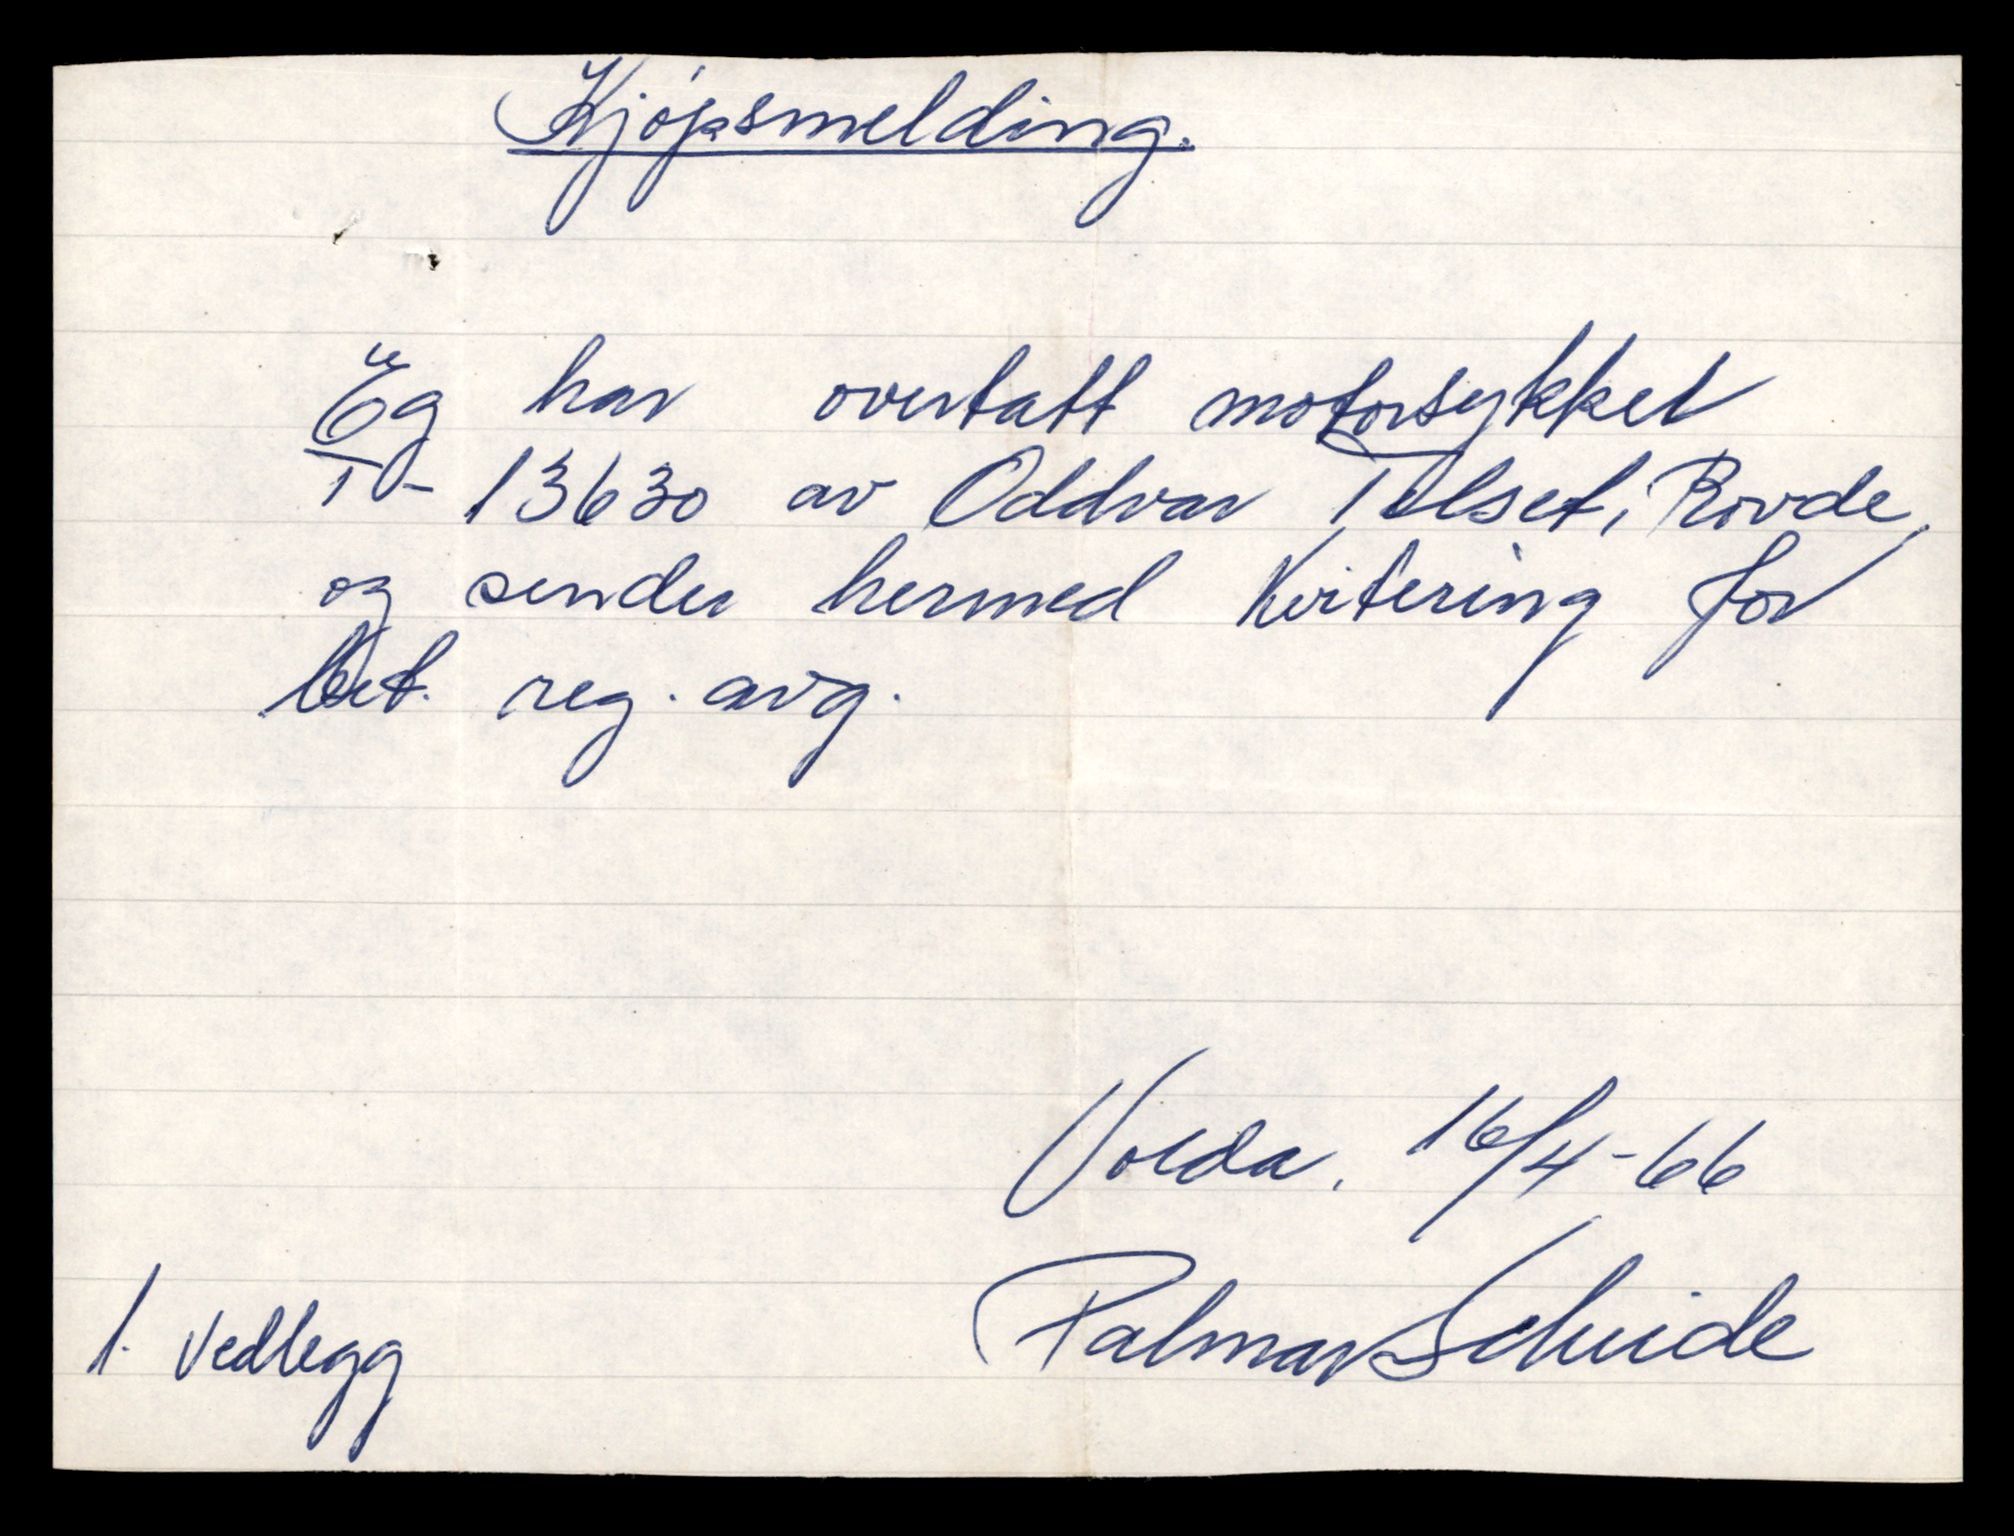 Kjøpsmelding.
Eg har overtatt motorsykkel
T- 13630 av Oddvar Tolset, Rovde,
og sender hermed kvitering for
bet. reg. avg.
Volda, 16/4-66
Palmar Scheide
1. Vedlegg